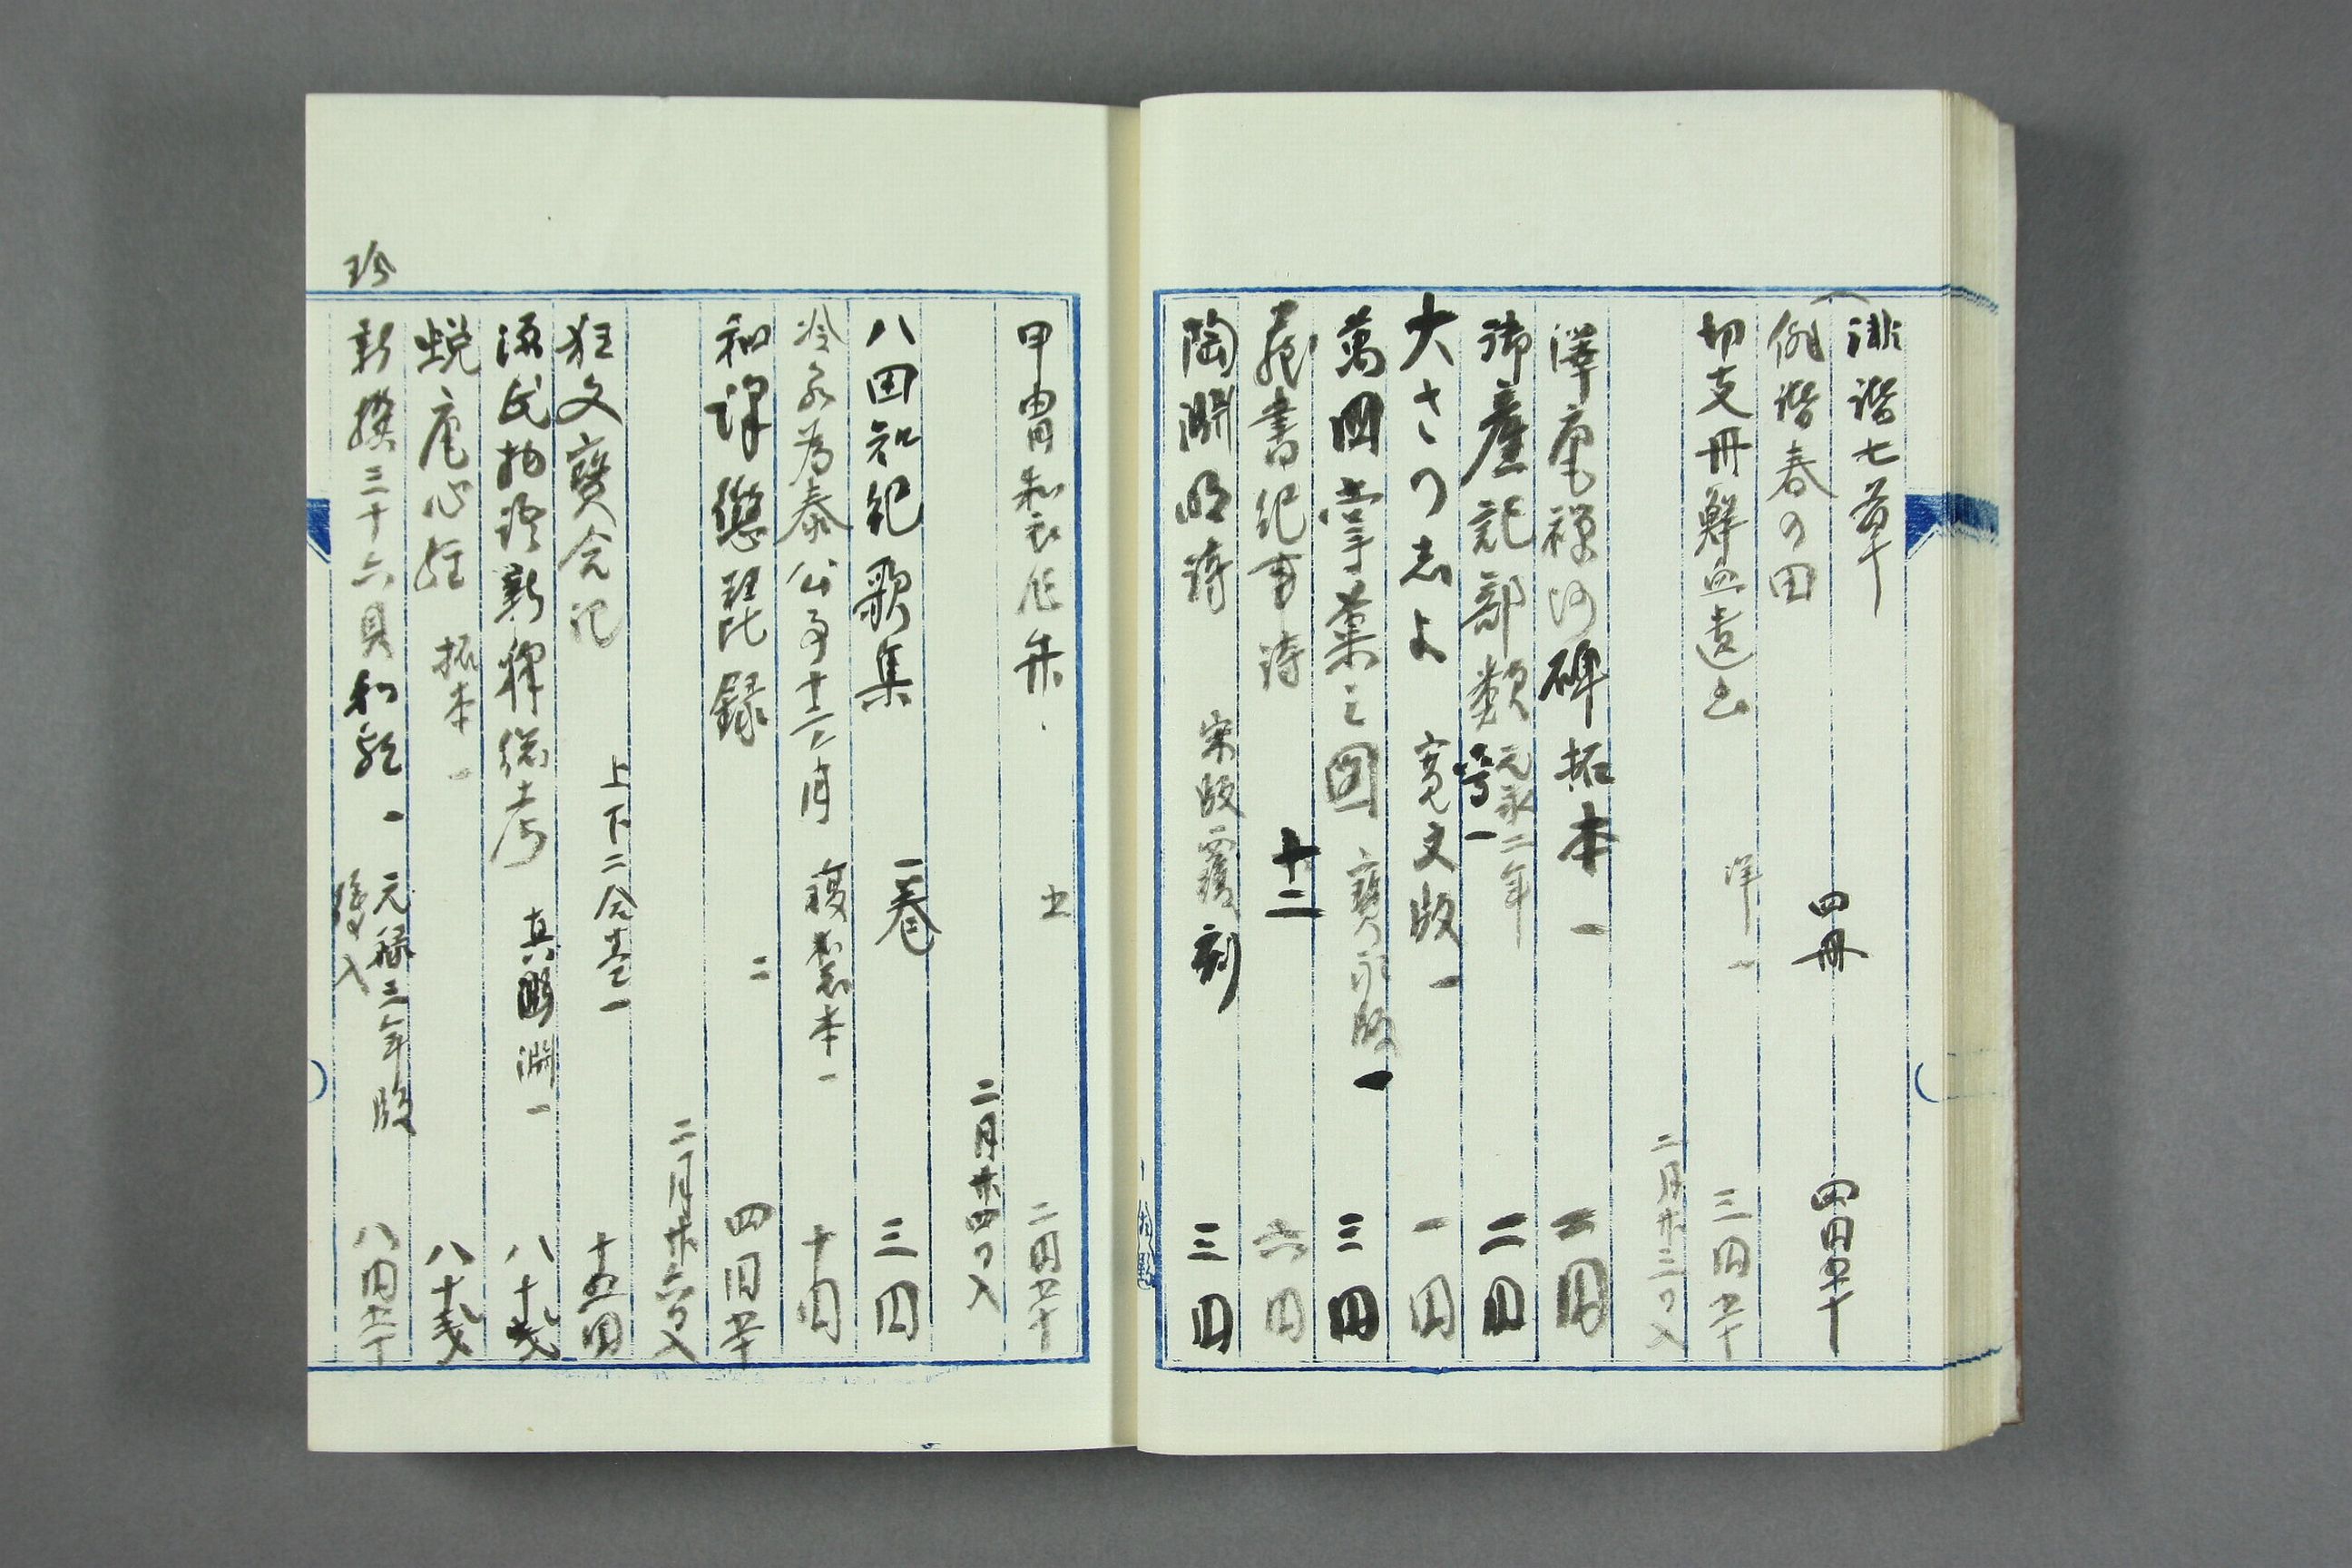 俳諧七草
俳諧春の田 四冊 四円五十
切支丹鮮血遺書 洋一 三円五十
二月廿三日入
澤庵禅師碑拓本 一 二円
御産記部類 元永二年 一 二円
大さつしよ 寛文版 一 一円
萬国掌菓之図 寶永版 一 三円
蔵書紀事詩 十二 六円
陶淵明詩 宋版覆刻 三円
甲冑製作 五 二円五十
二月廿四日入
八田知紀歌集 一巻 三円
冷泉為泰公手十二ヶ月 複製本 一 十円
和譯戀琵琶録 二 四円五十
二月廿六日入
狂文寶合記 上下二合壹 一 十五円
源氏物語新釋総考 真淵 一 八十銭
蛻庵心経 拓本 一 八十銭
珍
新撰三十六貝和歌 一 元禄三年版 八円五十